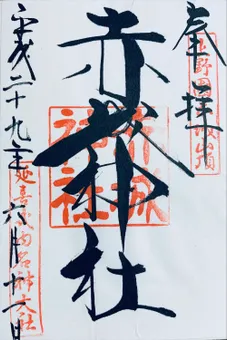 奉拝
上野国赤城山頂
赤城神社
赤城
神社
平成二十九年六月十一日
延喜式内名神大社